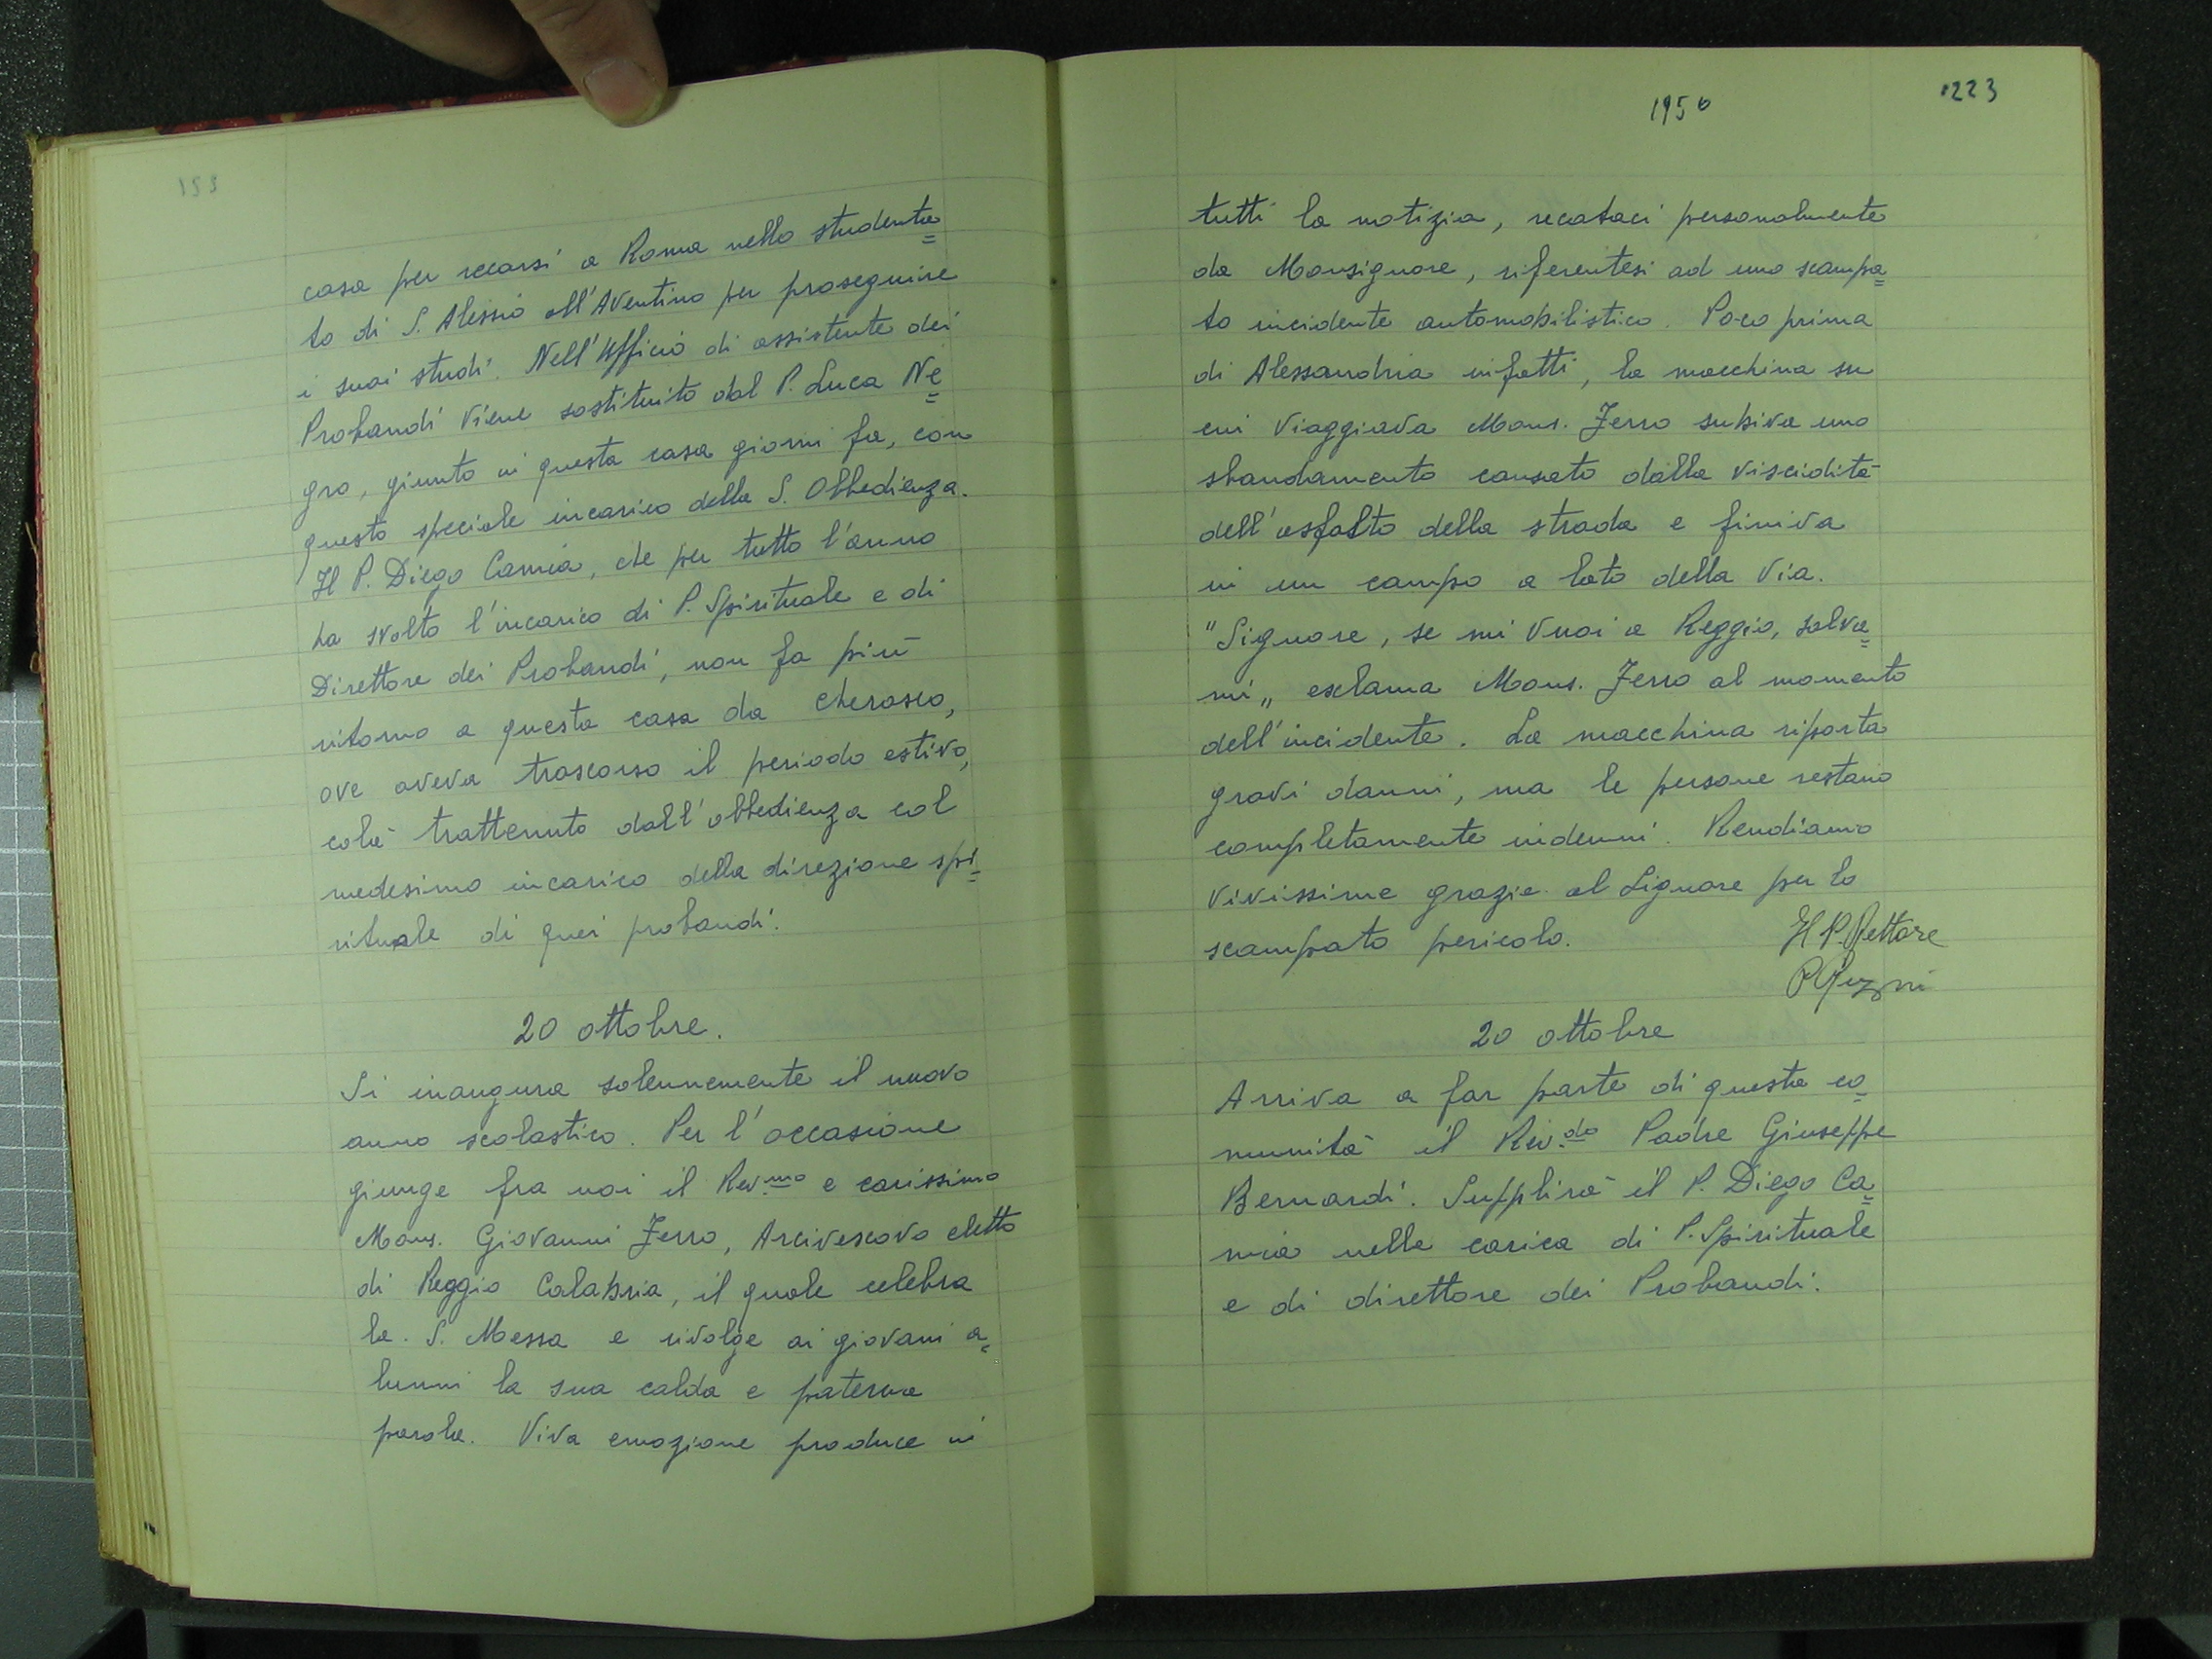 153
casa per recarsi a Roma nello studenta=
to di S. Alessio all'Aventino per proseguire
i suoi studi. Nell'Ufficio di assistente dei
Probandi viene sostituito dal P. Luca Ne=
gro, giunto in questa casa giorni fa, con
questo speciale incarico della S. Obbedienza.
Il P. Diego Camia, che per tutto l'anno
ha svolto l'incarico di P. Spirituale e di
Direttore dei Probandi, non fa più
ritorno a questa casa da Cherasco,
ove aveva trascorso il periodo estivo,
colà trattenuto dall'obbedienza col
medesimo incarico della direzione spi=
rituale di quei probandi.
20 ottobre.
Si inaugura solennemente il nuovo
anno scolastico. Per l'occasione
giunge fra noi il Rev.mo e carissimo
Mons. Giovanni Ferro, Arcivescovo eletto
di Reggio Calabria, il quale celebra
la S. Messa e rivolge ai giovani a=
lunni la sua calda e paterna
parola. Viva emozione produce in
1950
223
tutti la notizia, recataci personalmente
da Monsignore, riferentesi ad uno scampa=
to incidente automobilistico. Poco prima
di Alessandria infatti, la macchina su
cui viaggiava Mons. Ferro subiva uno
sbandamento causato dalla viscidità
dell'asfalto della strada e finiva
in un campo a lato della via.
"Signore, se mi vuoi a Reggio, salva=
mi„ esclama Mons. Ferro al momento
dell'incidente. La macchina riporta
gravi danni, ma le persone restano
completamente indenni. Rendiamo
vivissime grazie al Signore per lo
scampato pericolo.
Il P. Rettore
20 ottobre
Arriva a far parte di questa co=
munità il Rev.do Padre Giuseppe
Bernardi. Supplirà il P. Diego Ca=
mia nella carica di P. Spirituale
e di direttore dei Probandi.